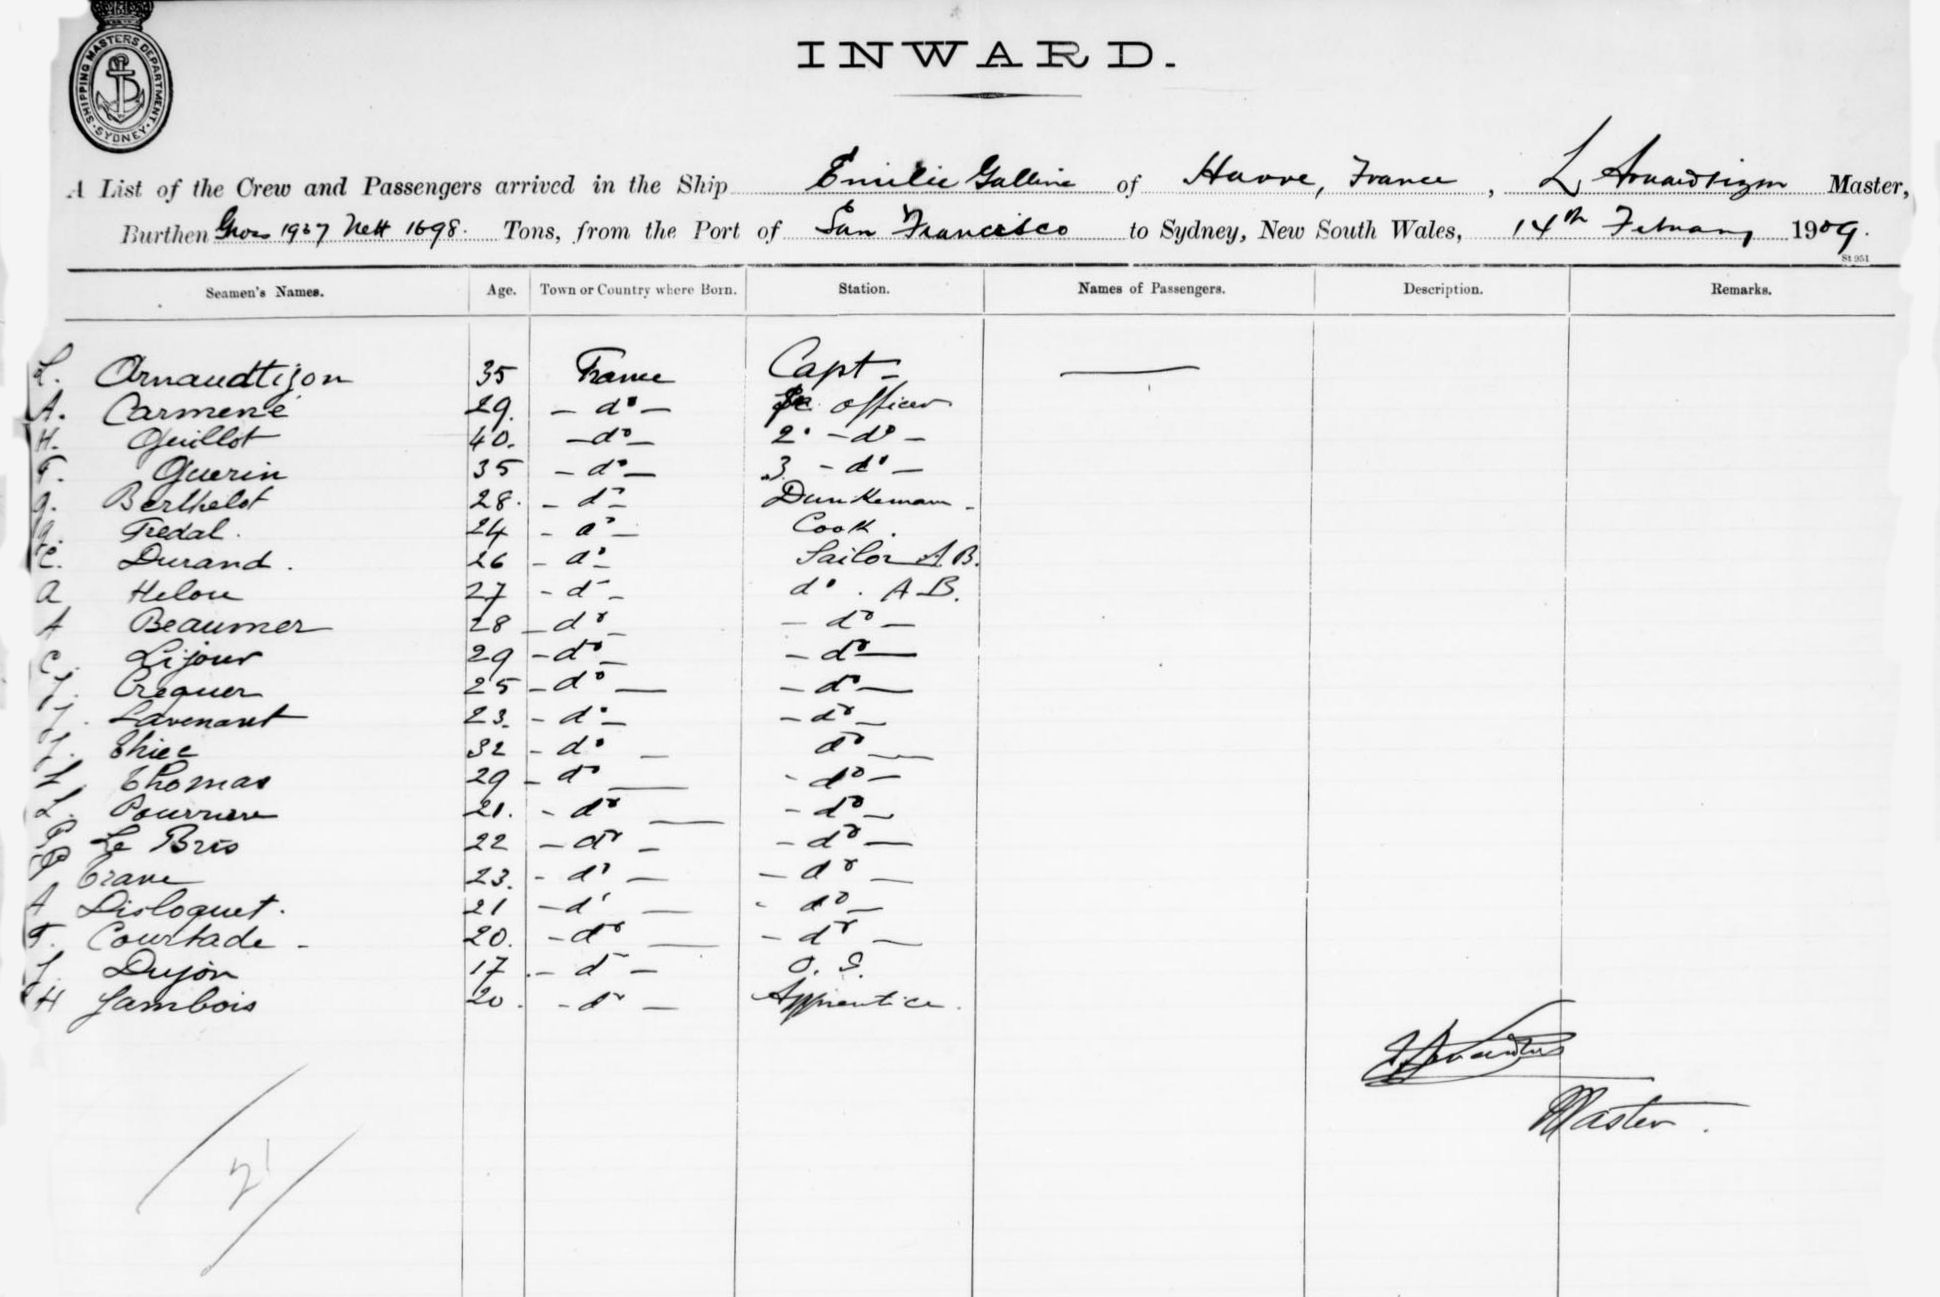 SHIPPING MASTERS DEPARTMENT
SYDNEY
INWARD.
A List of the Crew and Passengers arrived in the Ship Emilie Galline of Havre, France, L Arnaudtizon Master,
Burthen Gros 1937 Nett 1698. Tons, from the Port of San Francisco to Sydney, New South Wales, 14th February 1909.
St 951
Seamen's Names. Age. Town or Country where Born. Station. Names of Passengers. Description. Remarks.
L. Arnaudtizon 35 France Capt -
A. Carmené 29. - do - officer
H. Guillot 40. - do - 2o - do -
F. Guerin 35 - do - 3 - do -
g. Berthelot 28. - do - Dunkeman -
Fredal. 24 - do - Cook.
C. Durand. 26 - do - Sailor A.B.
A Helou 27 - do - do. A B.
A Beaumer 28 - do - - do -
C. Lijour 29 - do - - do -
J. Creguer 25 - do - - do -
J. Lavenant 23. - do - - do -
J. Thiec 32 - do - do -
L Thomas 29 - do - - do -
L. Pourriere 21. - do - - do -
P Le Bris 22 - do - - do -
P Crane 23. - do - - do -
A Disloquet. 21 - do - - do -
F. Courtade - 20. - do - - do -
J. Dujon 17 - do - O. S.
H Jambois 20. - do - Apprentice.
Master.
21